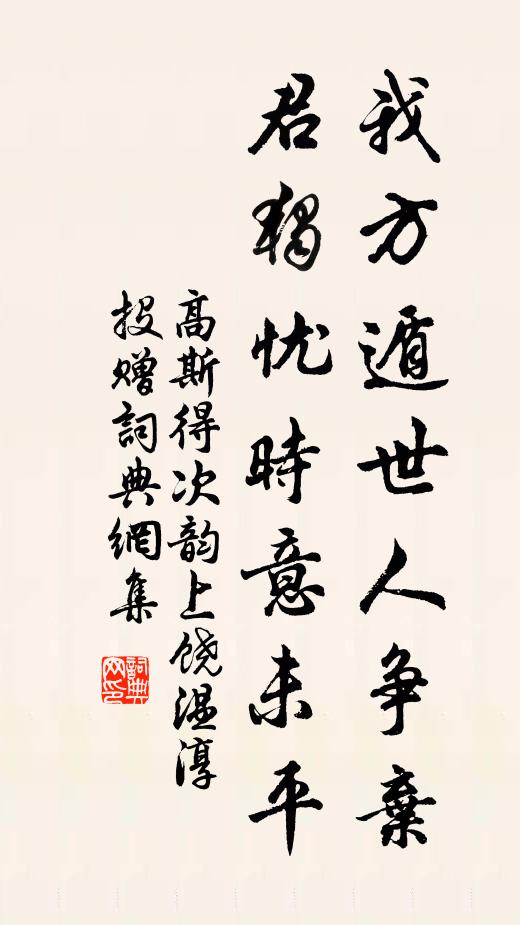 我方遁世人争棄
君獨忧時意未平
高斯得次韵上饶温淳
投赠詞典網集
詞典網印